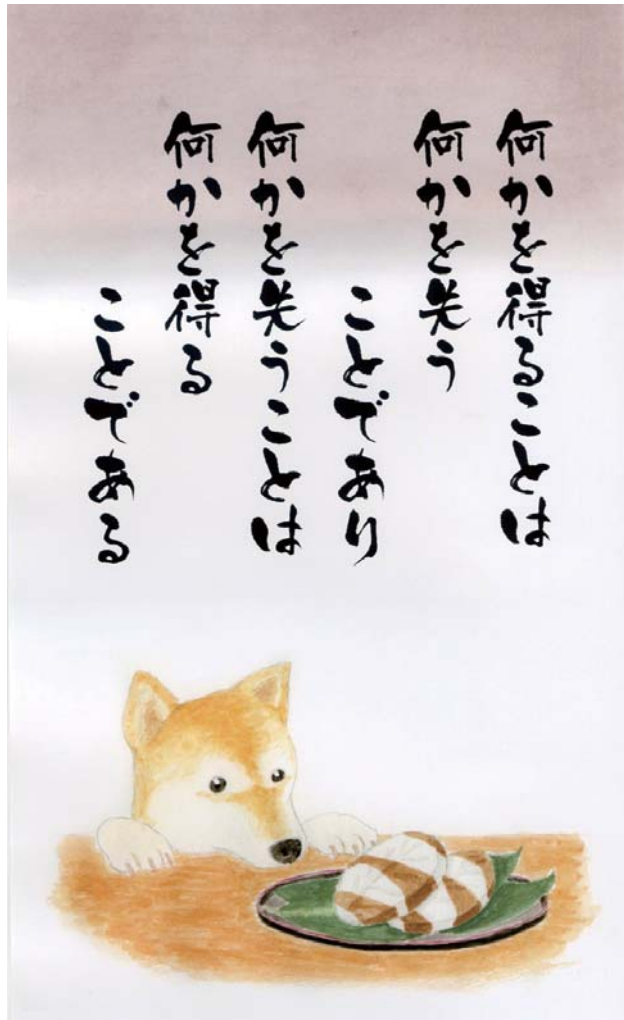 何かを得ることは
何かを失う
ことであり
何かを失うことは
何かを得る
ことである